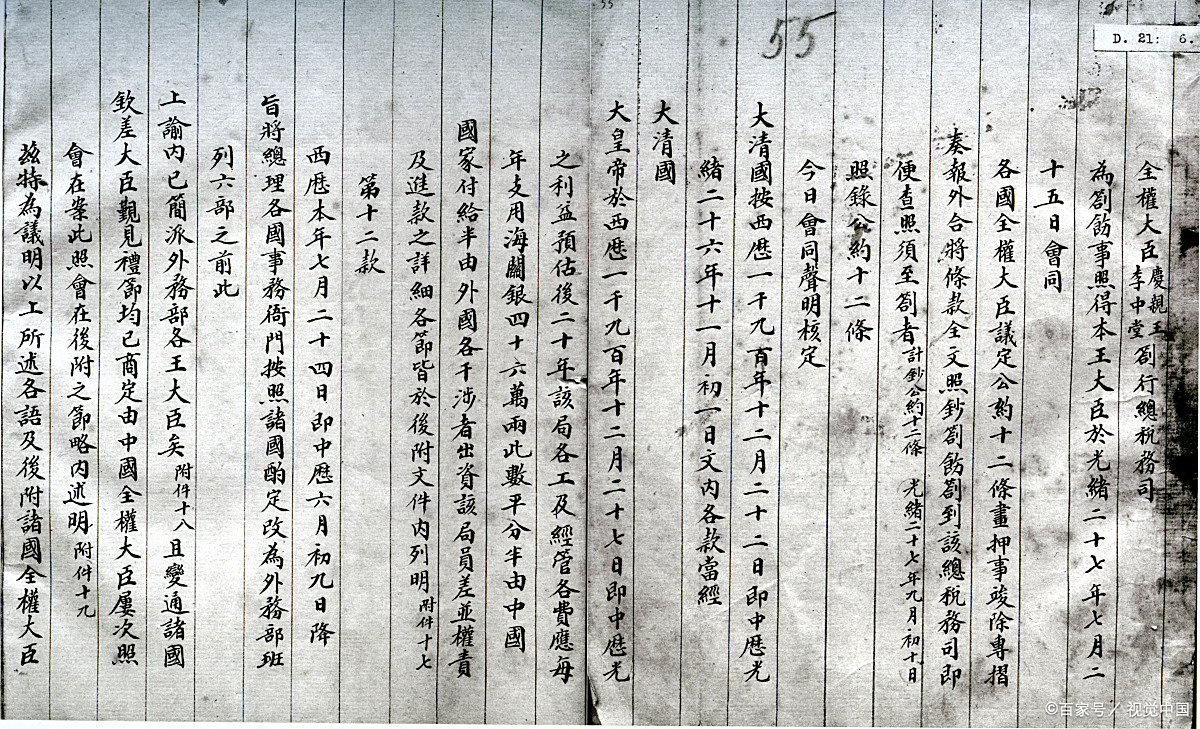 55
D. 21: 6.
全權大臣慶親王李中堂劄行總稅務司
為劄飭事照得本王大臣於光緒二十七年七月二
十五日會同
各國全權大臣議定公約十二條畫押事竣除專摺
奏報外合將條款全文照鈔劄飭劄到該總稅務司即
便查照須至劄者計鈔公約十二條 光緒二十七年九月初十日
照錄公約十二條
今日會同聲明核定
大清國按西厯一千九百年十二月二十二日即中厯光
緒二十六年十一月初一日文內各款當經
大清國
大皇帝於西厯一千九百年十二月二十七日即中厯光
之利益預估後二十年該局各工及經管各費應每
年支用海關銀四十六萬兩此數平分半由中國
國家付給半由外國各干涉者出資該局員差並權責
及進款之詳細各節皆於後附文件內列明附件十七
第十二款
西厯本年七月二十四日即中厯六月初九日降
旨將總理各國事務衙門按照諸國酌定改為外務部班
列六部之前此
上諭內已簡派外務部各王大臣矣附件十八且變通諸國
欽差大臣覲見禮節均已商定由中國全權大臣屢次照
會在案此照會在後附之節略內述明附件十九
茲特為議明以上所述各語及後附諸國全權大臣
©百家号／视觉中国